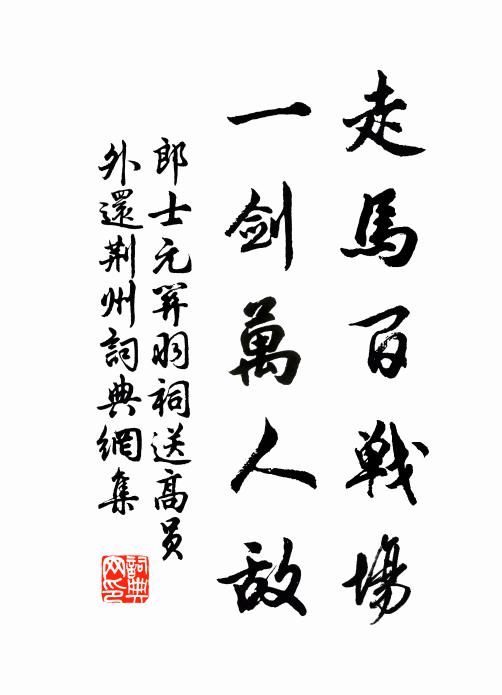 走馬百戰場
一劍萬人敵
郎士元關羽祠送高員
外還荆州詞典網集
詞典
网印